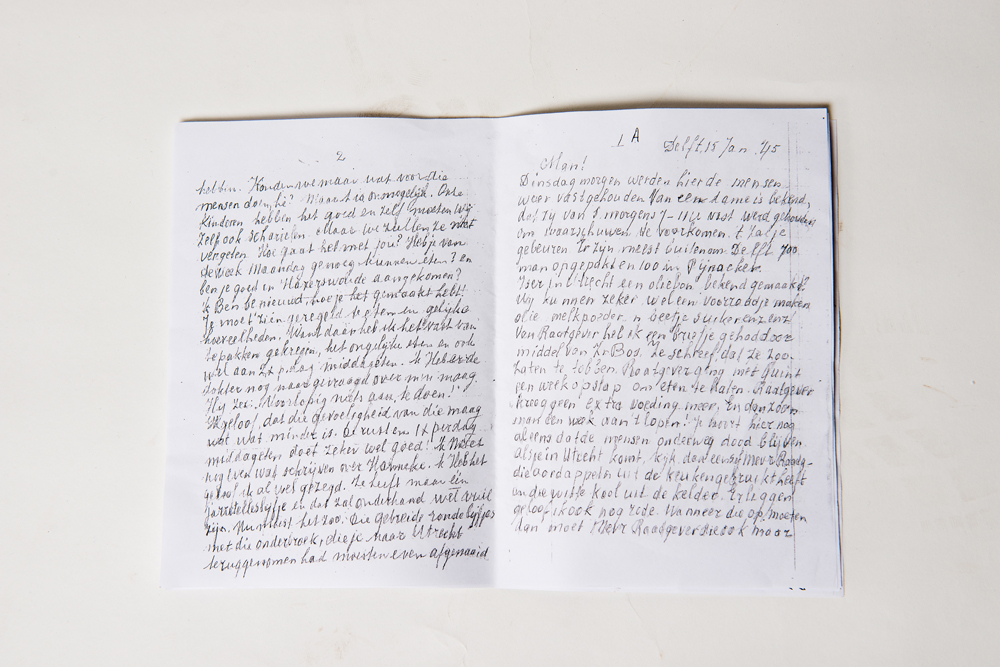 2
hebben. Konden we maar wat voor die
mensen doen, hè? Maar 't is onmogelijk. Onze
kinderen hebben het goed en zelf moeten wij
zelf ook scharrelen. Maar we zullen ze niet
vergeten. Hoe gaat het met jou? Heb je van
de week Maandag genoeg kunnen eten? en
ben je goed in Hazerswoude aangekomen?
'k Ben benieuwd, hoe je het gemaakt hebt!
Je moet zien geregeld te eten en gelijke
hoeveelheden. Want daar heb ik het vast van
te pakken gekregen, het ongelijke eten en ook
wel aan 2 x p. dag middageten. 'k Heb
dokter nog naar gevraagd over mijn maag.
Hij zei: "Voorlopig niets aan te doen!"
'k geloof, dat die gevoeligheid van die maag
wat wat minder is. De rust en 1 x per dag
middageten doet zeker wel goed! 'k Moet
nog even wat schrijven over Hanneke. 'k Heb het
geloof ik al wel gezegd. Ze heeft maar één
jarretellelijfje en dat zal onderhand wel vuil
zijn. Nu moest het zoo: Die gebreide ronde lijfjes
met die onderbroek, die je naar Utrecht
teruggenomen had moesten even afgenaaid
1 A Delft, 15 Jan. '45
Man!
Dinsdagmorgen werden hier de mensen
weer vastgehouden. Van een dame is bekend,
dat zij van 's morgens 7-11 u vast werd gehouden
om waarschuwen te voorkomen. 't Zal je
gebeuren. Er zijn meest buitenom Delft 700
man opgepakt en 100 in Pijnacker.
Is er in Utrecht een oliebon bekend gemaakt?
Wij kunnen zeker wel een voorraadje maken
olie melkpoeder n beetje suiker enz enz!
Van Raatgever heb ik een briefje gehad door
middel van Zr Bos. Ze schreef, dat ze zoo
zaten te tobben. Raatgever ging met Quint
een week op stap om eten te halen. Raatgever
kreeg geen extra voeding meer, En dan zoon
man een week aan 't lopen! Je hoort hier nog
al eens dat de mensen onderweg dood blijven
als je in Utrecht komt, kijk dan eens of Mevr Raatg-
die aardappelen uit de keuken gebruikt heeft
en die witte kool uit de kelder. Er liggen
geloof ik ook nog rode. Wanneer die op moeten
dan moet Mevr Raatgever die ook maar